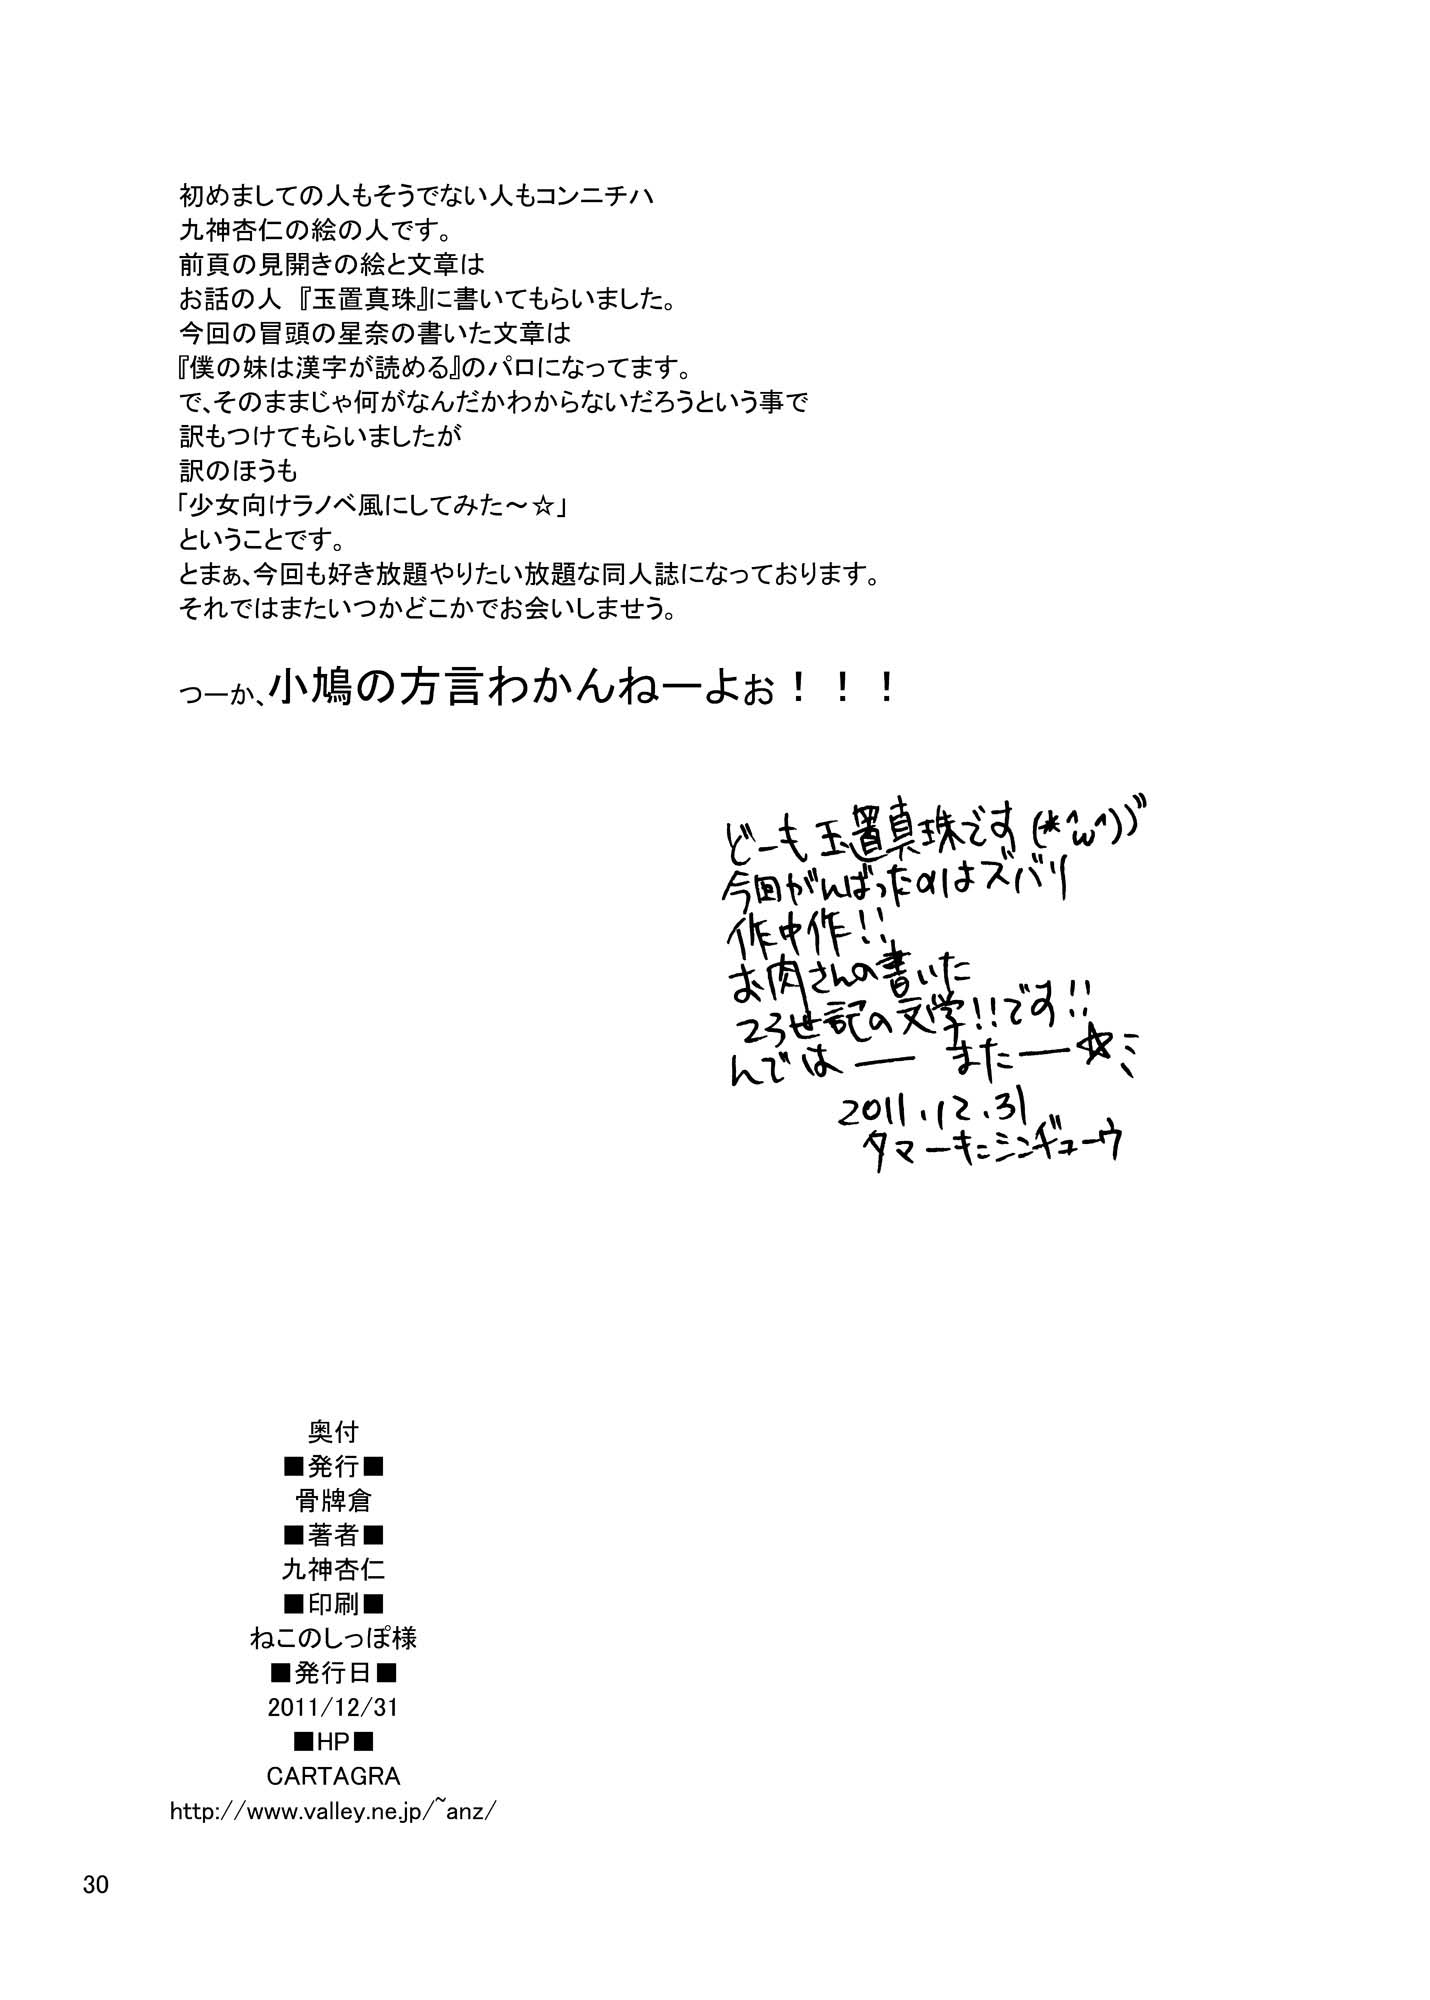 初めましての人もそうでない人もコンニチハ
九神杏仁の絵の人です。
前頁の見開きの絵と文章は
お話の人　『玉置真珠』に書いてもらいました。
今回の冒頭の星奈の書いた文章は
『僕の妹は漢字が読める』のパロになってます。
で、そのままじゃ何がなんだかわからないだろうという事で
訳もつけてもらいましたが
訳のほうも
「少女向けラノベ風にしてみた～☆」
ということです。
とまぁ、今回も好き放題やりたい放題な同人誌になっております。
それではまたいつかどこかでお会いしませう。
つーか、小鳩の方言わかんねーよぉ！！！
どーも玉置真珠です(*^ω^)ﾉﾞ
今回がんばったのはズバリ
作中作!!
お肉さんの書いた
23世記の文学!!です!!
んではー またー☆ミ
2011.12.31
タマーキニシンギューウ
奥付
■発行■
骨牌倉
■著者■
九神杏仁
■印刷■
ねこのしっぽ様
■発行日■
2011/12/31
■HP■
CARTAGRA
http://www.valley.ne.jp/~anz/
30